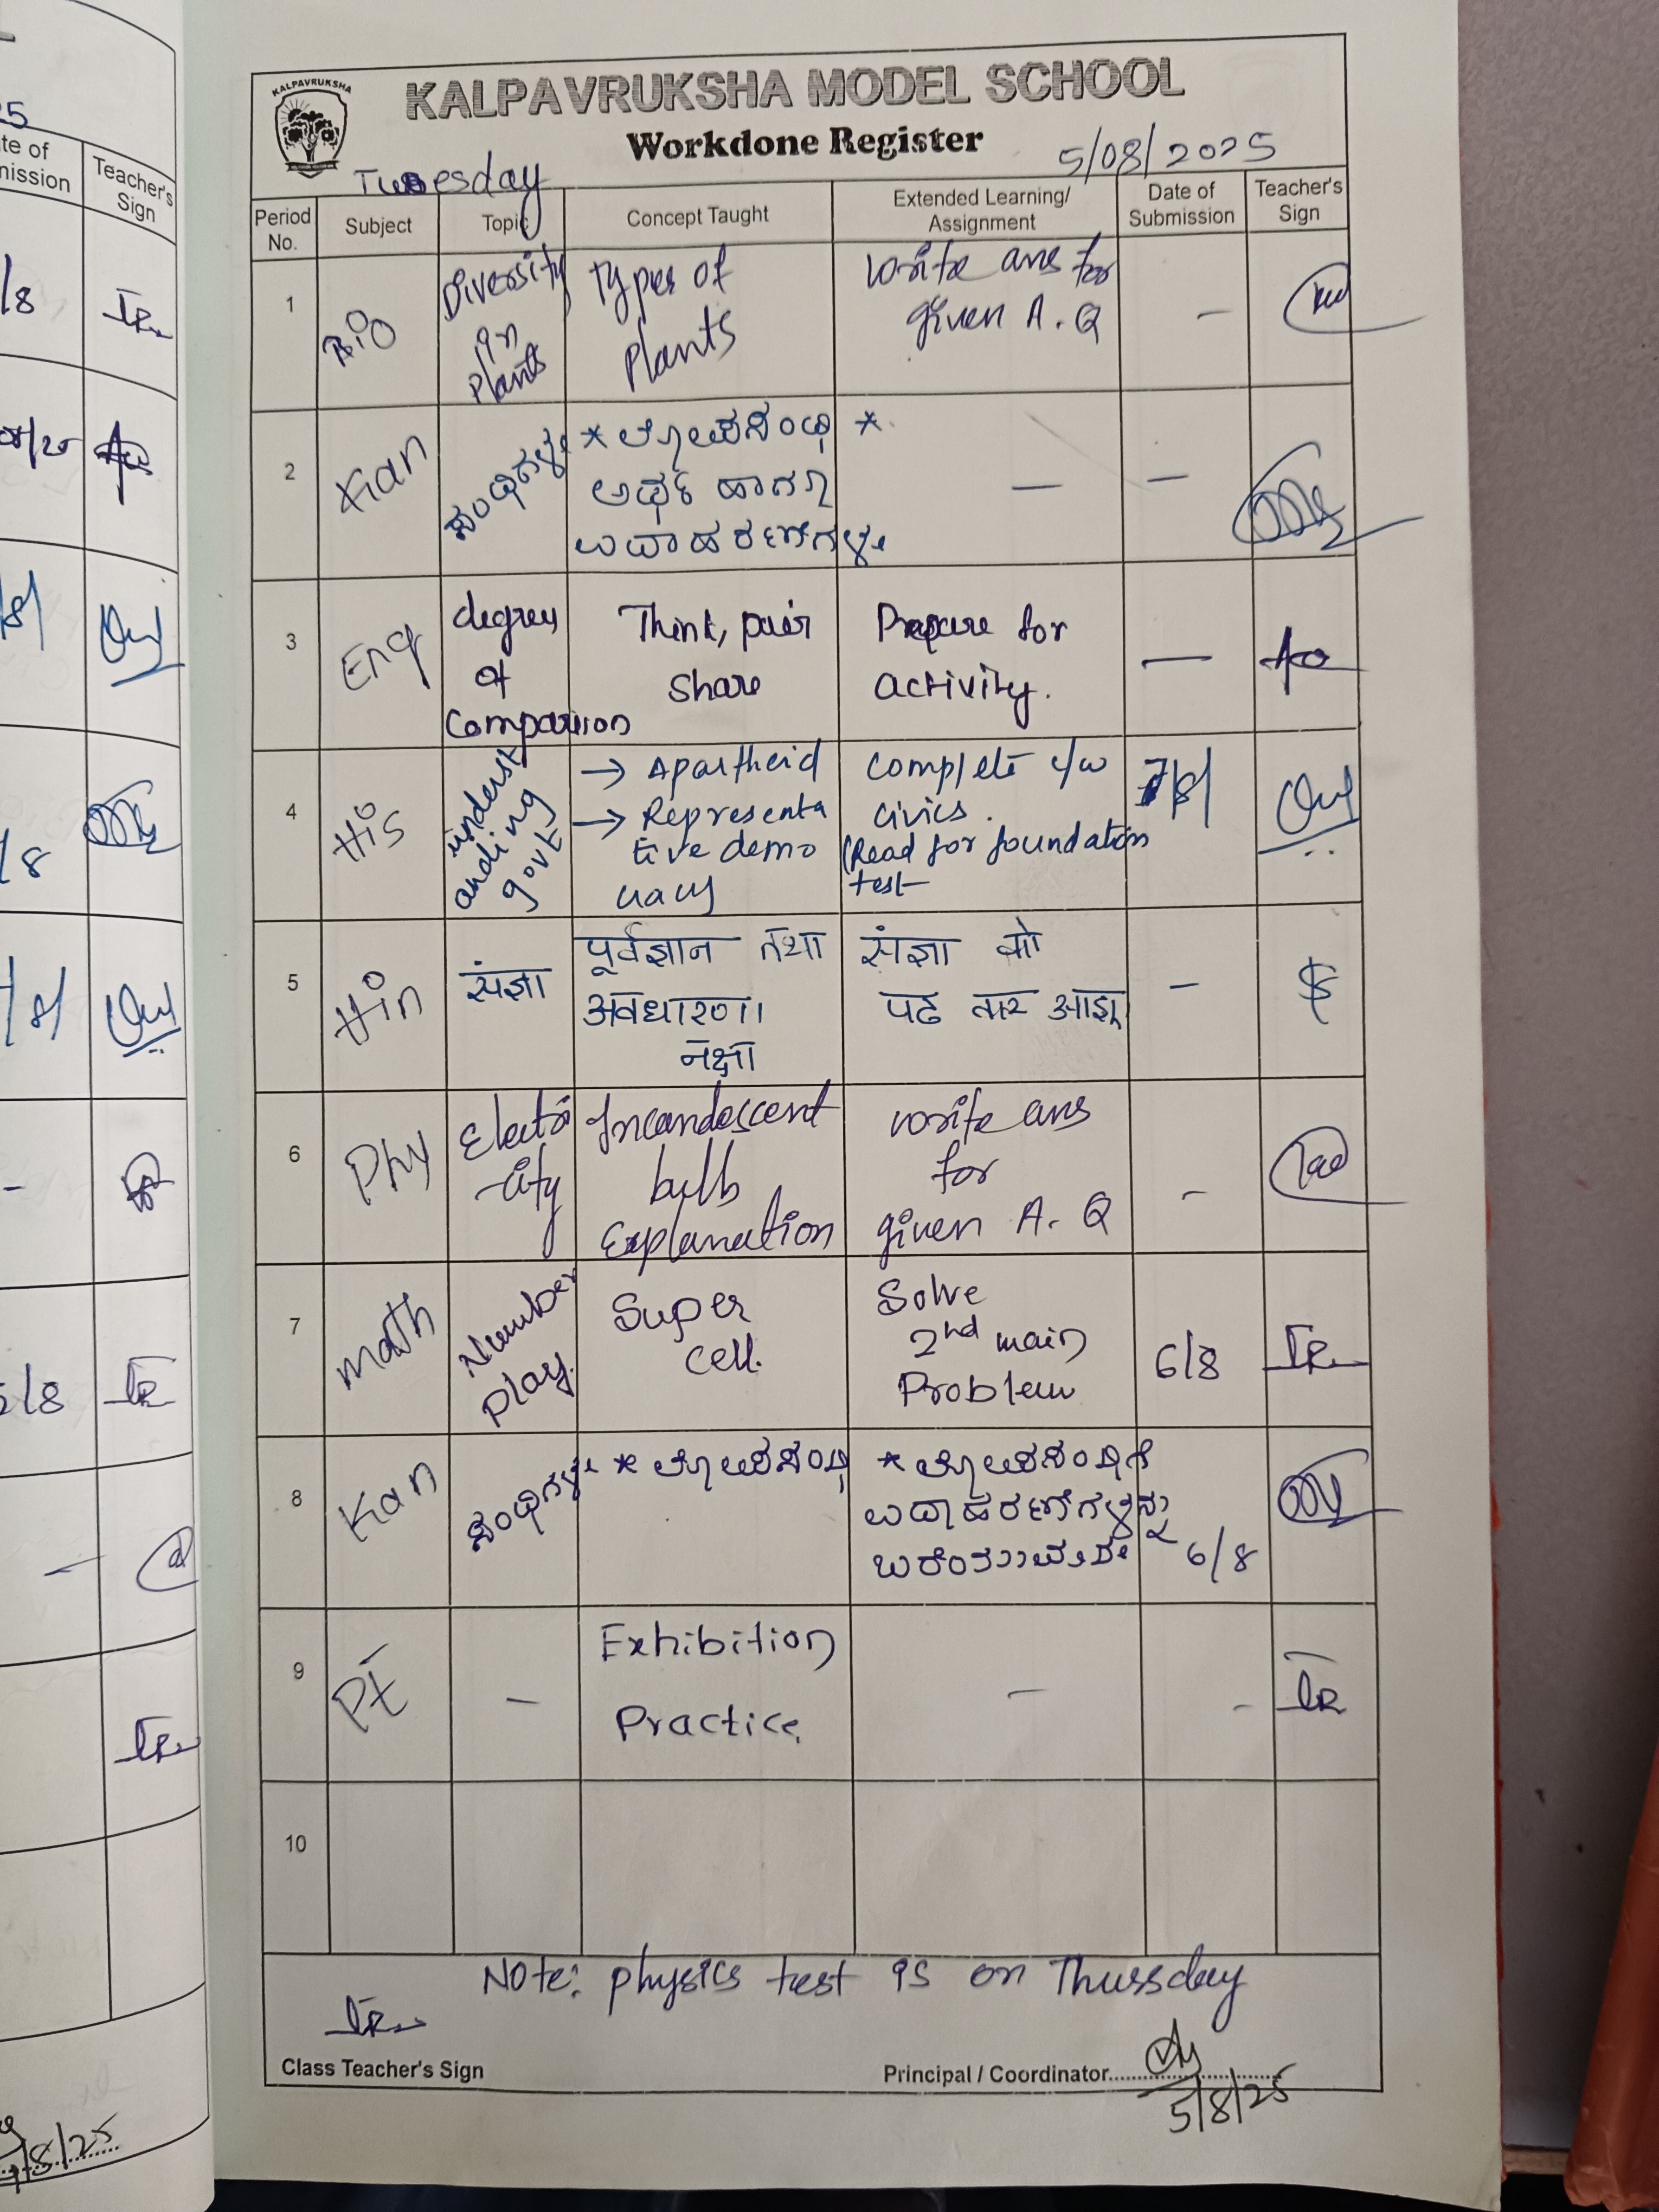 KALPAVRUKSHA
KALPAVRUKSHA MODEL SCHOOL
Workdone Register
Tuesday
5/08/2025
Period No.
Subject
Topic
Concept Taught
Extended Learning/ Assignment
Date of Submission
Teacher's Sign
1
Bio
Diversity
in
plants
Types of
plants
write ans for
given A.Q
-
2
Kan
ಸಂಧಿಗಳು
* ಲೋಪಸಂಧಿ *
ಅರ್ಥ ಹಾಗೂ
ಉದಾಹರಣೆಗಳು
—
—
3
Eng
degrees
of
Comparison
Think, pair
share
Prepare for
activity.
—
4
His
underst
anding
govt
→ Apartheid
→ Representa
tive demo
cracy
complete c/w
civics.
(Read for foundation
test
7/8/
5
Hin
संज्ञा
पूर्वज्ञान तथा
अवधारणा
नक्षा
संज्ञा को
पढ कर आइए
-
6
Phy
Electri
-city
Incandescent
bulb
Explanation
write ans
for
given A. Q
-
7
math
Number
play.
Super
cell.
Solve
2nd main
Problem
6/8
IR
8
Kan
ಸಂಧಿಗಳು
* ಲೋಪಸಂಧಿ
* ಲೋಪಸಂಧಿಗೆ
ಉದಾಹರಣೆಗಳನ್ನು
ಬರೆಯುವುದು
6/8
9
PE
-
Exhibition
Practice
-
-
IR
10
Note: physics test is on Thursday
Class Teacher's Sign
Principal / Coordinator
5/8/25
25
te of
mission
Teacher's
Sign
/8
/8
/8
/8/25